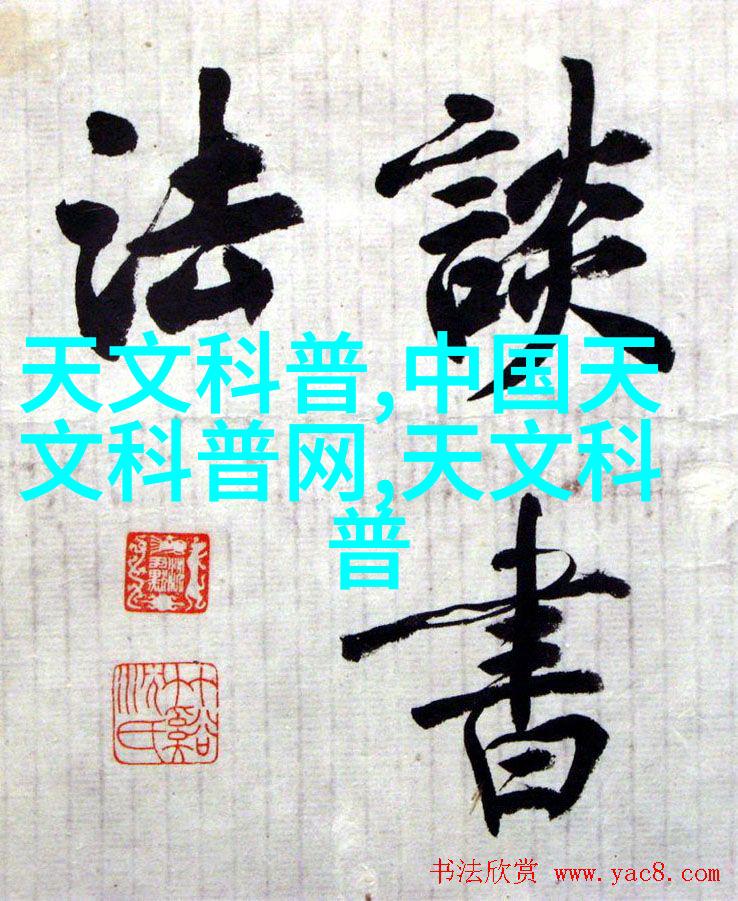 談書
法
天文科普,中国天
文科普网,天文科
普
书法欣赏 www.yac8.com